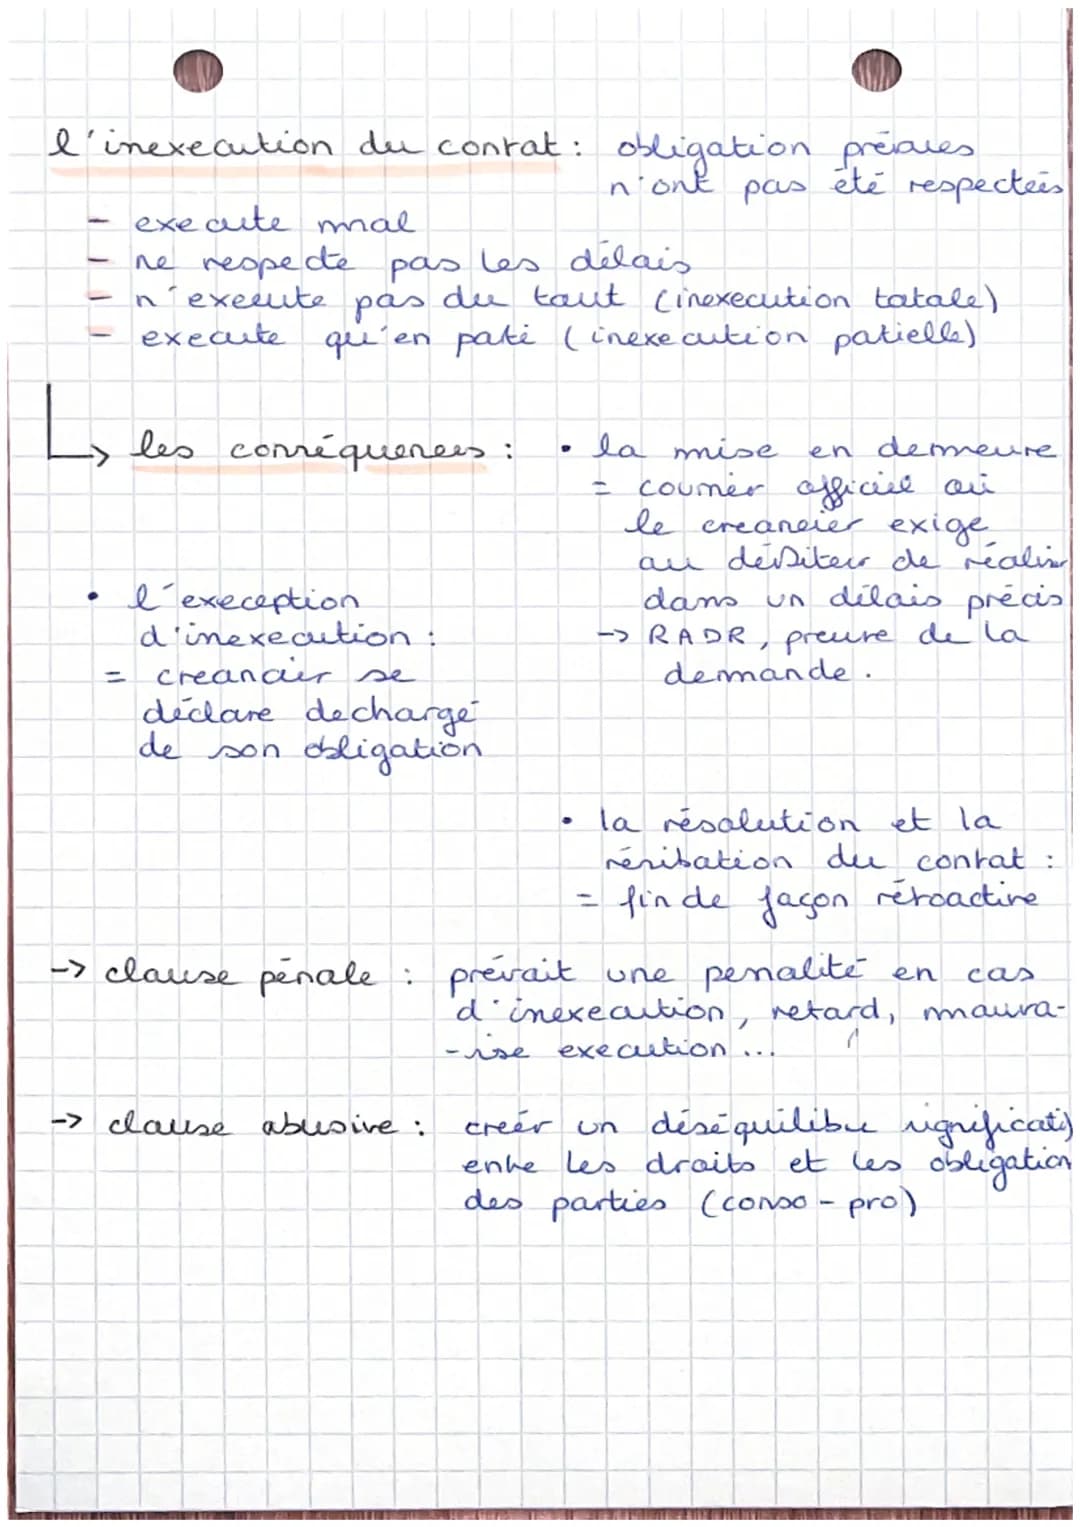 l'inexecution du contrat : obligation prévues
n'ont pas été respectées
- execute mal
- ne respecte pas les délais
- n'execute pas du tout (inexecution totale)
- execute qu'en partie (inexecution partielle)
↳ les conséquences :
• la mise en demeure
= courrier officiel où
le creancier exige
au débiteur de réaliser
dans un délais précis
-> RADR, preuve de la
demande.
• l'exeception
d'inexecution :
= creancier se
déclare dechargé
de son obligation
• la résolution et la
résiliation du contrat :
= fin de façon rétroactive
-> clause pénale : prévoit une penalité en cas
d'inexecution, retard, mauva-
-ise execution ...
-> clause abusive : créer un déséquilibre significatif
entre les droits et les obligation
des parties (conso - pro)